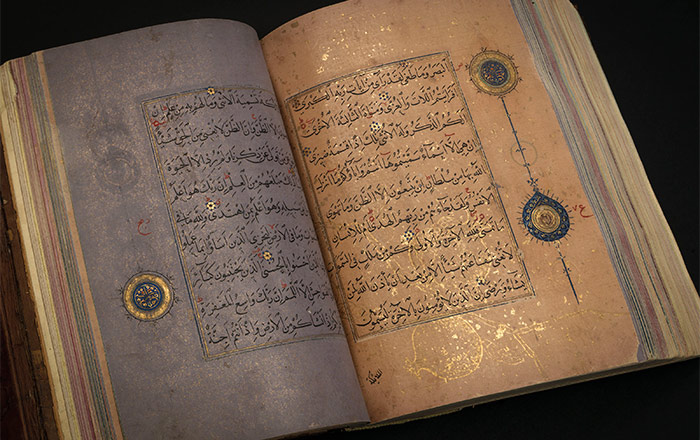 البصر وما طغى لقد رأى من آيات ربه الكبرى
أفرأيتم اللات والعزى ومناة الثالثة الأخرى
ألكم الذكر وله الأنثى تلك إذا قسمة ضيزى
إن هي إلا أسماء سميتموها أنتم وآباؤكم ما أنزل
الله بها من سلطان إن يتبعون إلا الظن وما تهوى
الأنفس ولقد جاءهم من ربهم الهدى أم للإنسان
ما تمنى فلله الآخرة والأولى وكم من ملك في السموات
لا تغني شفاعتهم شيئا إلا من بعد أن يأذن الله لمن
يشاء ويرضى إن الذين لا يؤمنون بالآخرة ليسمون
تسمية الأنثى وما لهم به من علم إن
إلا الظن وإن الظن لا يغني من الحق شيئا
عن ذكرنا ولم يرد إلا الحيوة
ذلك مبلغهم من العلم إن ربك هو أعلم
سبيله وهو أعلم بمن اهتدى ولله ما في
وما في الأرض ليجزي الذين أساؤا بما عملوا
الذين أحسنوا بالحسنى الذين يجتنبون كبائر
إلا اللمم إن ربك واسع المغفرة
أنشأكم من الأرض وإذ أنتم أجنة